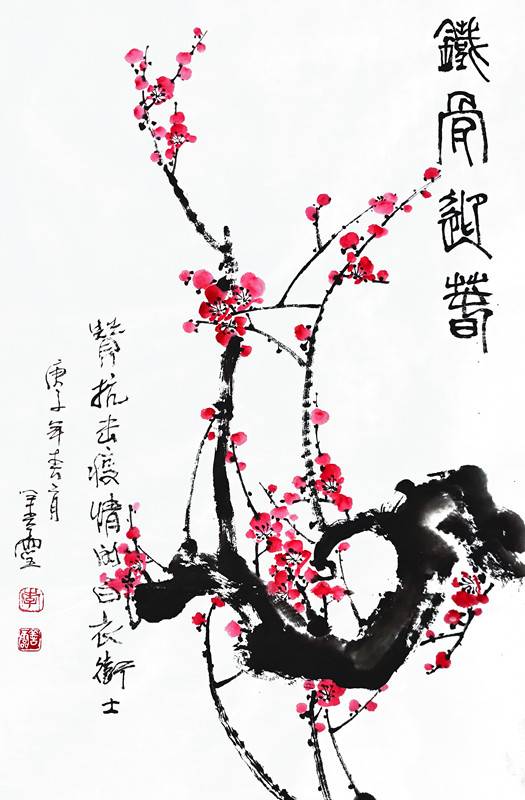 鐵骨迎春
贊抗击疫情的白衣衛士
庚子年春